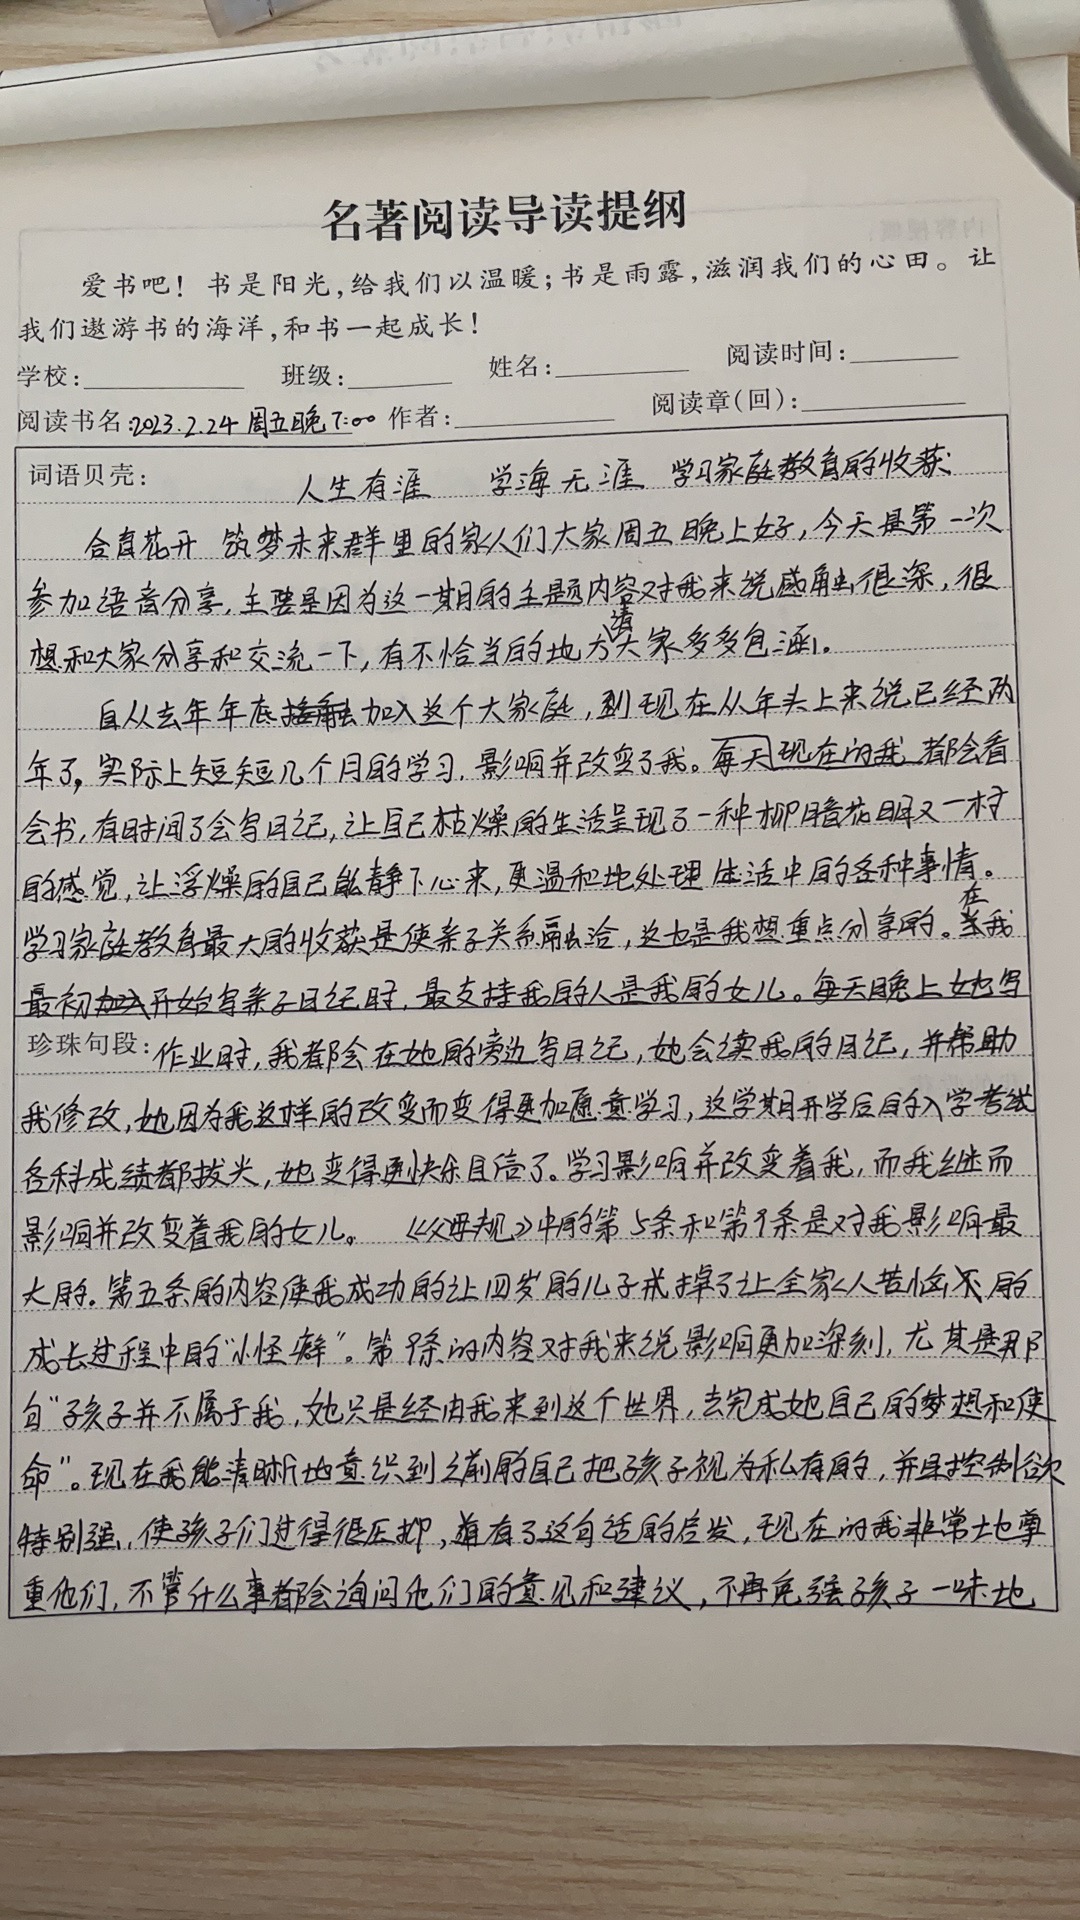 名著阅读导读提纲
爱书吧！书是阳光，给我们以温暖；书是雨露，滋润我们的心田。让
我们遨游书的海洋，和书一起成长！
学校： 班级： 姓名： 阅读时间：
阅读书名：2023.2.24 周五晚7:00 作者： 阅读章（回）：
词语贝壳： 人生有涯 学海无涯 学习家庭教育的收获
合育花开 筑梦未来群里的家人们大家周五晚上好，今天是第一次
参加语音分享，主要是因为这一期的主题内容对我来说感触很深，很
想和大家分享和交流一下，有不恰当的地方请大家多多包涵。
自从去年年底加入这个大家庭，到现在从年头上来说已经两
年了，实际上短短几个月的学习，影响并改变了我。每天现在的我都会看
会书，有时间了会写日记，让自己枯燥的生活呈现了一种柳暗花明又一村
的感觉，让浮燥的自己能静下心来，更温和地处理生活中的各种事情。
学习家庭教育最大的收获是使亲子关系融洽，这也是我想重点分享的。在我
最初开始写亲子日记时，最支持我的人是我的女儿。每天晚上她写
珍珠句段：作业时，我都会在她的旁边写日记，她会读我的日记，并帮助
我修改，她因为我这样的改变而变得更加愿意学习，这学期开学后的入学考试
各科成绩都拔尖，她变得更快乐自信了。学习影响并改变着我，而我继而
影响并改变着我的女儿。《父母规》中的第5条和第9条是对我影响最
大的。第五条的内容使我成功的让四岁的儿子戒掉了让全家人苦恼的
成长过程中的“小怪癖”。第9条的内容对我来说影响更加深刻，尤其是那
句“孩子并不属于我，她只是经由我来到这个世界，去完成她自己的梦想和使
命”。现在我能清晰地意识到之前的自己把孩子视为私有的，并且控制欲
特别强，使孩子们过得很压抑，有了这句话的启发，现在的我非常地尊
重他们，不管什么事都会询问他们的意见和建议，不再免强孩子一味地